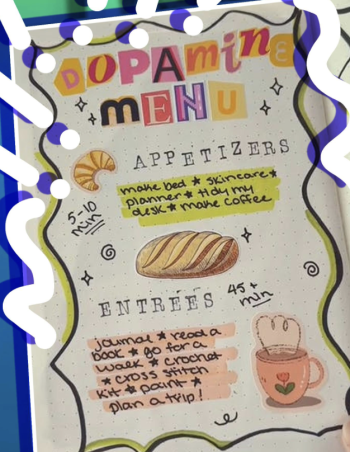 DOPAMinE
MENU
APPETIZERS
5-10
min
make bed ★ skincare ★
planner ★ tidy my
desk ★ make coffee
ENTRÉES
45+
min
journal ★ read a
book ★ go for a
walk ★ crochet
★ cross stitch
kit ★ paint ★
plan a trip!